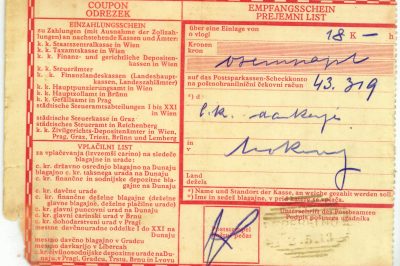 COUPON
ODREZEK
EINZAHLUNGSSCHEIN
zu Zahlungen (mit Ausnahme der Zollzah-
lungen) an nachstehende Kassen und Ämter:
k. k. Staatszentralkasse in Wien
k. k. Taxamtskasse in Wien
k. k. Finanz- und gerichtliche Depositen-
kassen in Wien
k. k. Steuerämter
k. k. Finanzlandeskassen (Landeshaupt-
kassen, Landeszahlämter)
k. k. Hauptpunzierungsamt in Wien
k. k. Hauptzollamt in Brünn
k. k. Gefällsamt in Prag
städtische Steueramtsabteilungen I bis XXI
in Wien
städtische Steuerkasse in Graz
städtisches Steueramt in Reichenberg
k. k. Zivilgerichts-Depositenämter in Wien,
Prag, Graz, Triest, Brünn und Lemberg
VPLAČILNI LIST
za vplačila (izvzemši carino) na sledeče
blagajne in urade:
c. kr. državno osrednjo blagajno na Dunaju
c. kr. blagajno c. taksnega urada na Dunaju
c. kr. finančne in sodnijske depozitne blagaj-
ne na Dunaju
c. kr. davčne urade
c. kr. finančne deželne blagajne (deželne
glavne blagajne, deželne plačilne urade)
c. kr. glavni puncovni urad na Dunaju
c. kr. glavni carinski urad v Brnu
c. kr. dohodarstveni urad v Pragi
mestne davčnouradne oddelke I do XXI na
Dunaju
mestno davčno blagajno v Gradcu
mestno davkarijo v Libercah
c. kr. civilnosodne depozitne urade na Du-
naju, v Pragi, Gradcu, Trstu, Brnu in Lvovu
EMPFANGSSCHEIN
PREJEMNI LIST
über eine Einlage von
o vlogi
18 K –
Kronen
kron
osemnajst
auf das Postsparkassen-Scheckkonto
na poštnohranilnični čekovni račun
43.319
*)
c. k.
in
v
Land
dežels
*) Name und Standort der Kasse, an welche gezahlt werden soll
*) Ime in sedež blagajne, v prid
Unterschrift des Postbeamten